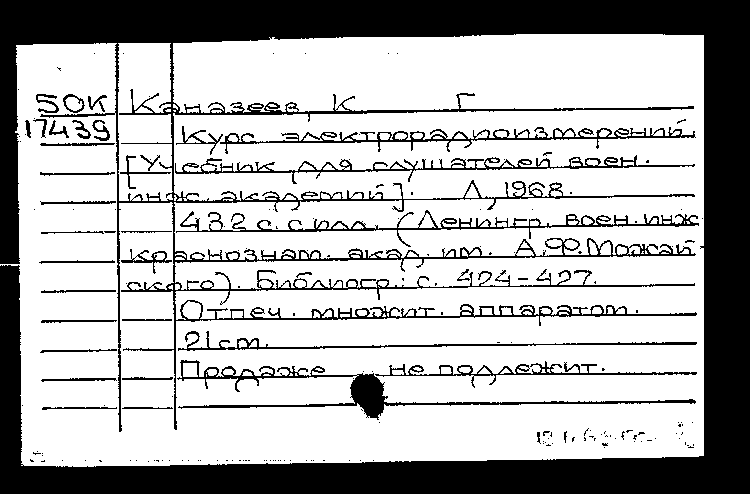 50К Каназеев, К Г
17439 Курс электрорадиоизмерений.
[Учебник для слушателей воен.
инж. академий]. Л, 1968.
432 с. с илл. (Ленингр. воен. инж
краснознам. акад. им. А.Ф.Можай-
ского). Библиогр.: с. 424-427.
Отпеч. множит. аппаратом.
21 см.
Продаже не подлежит.